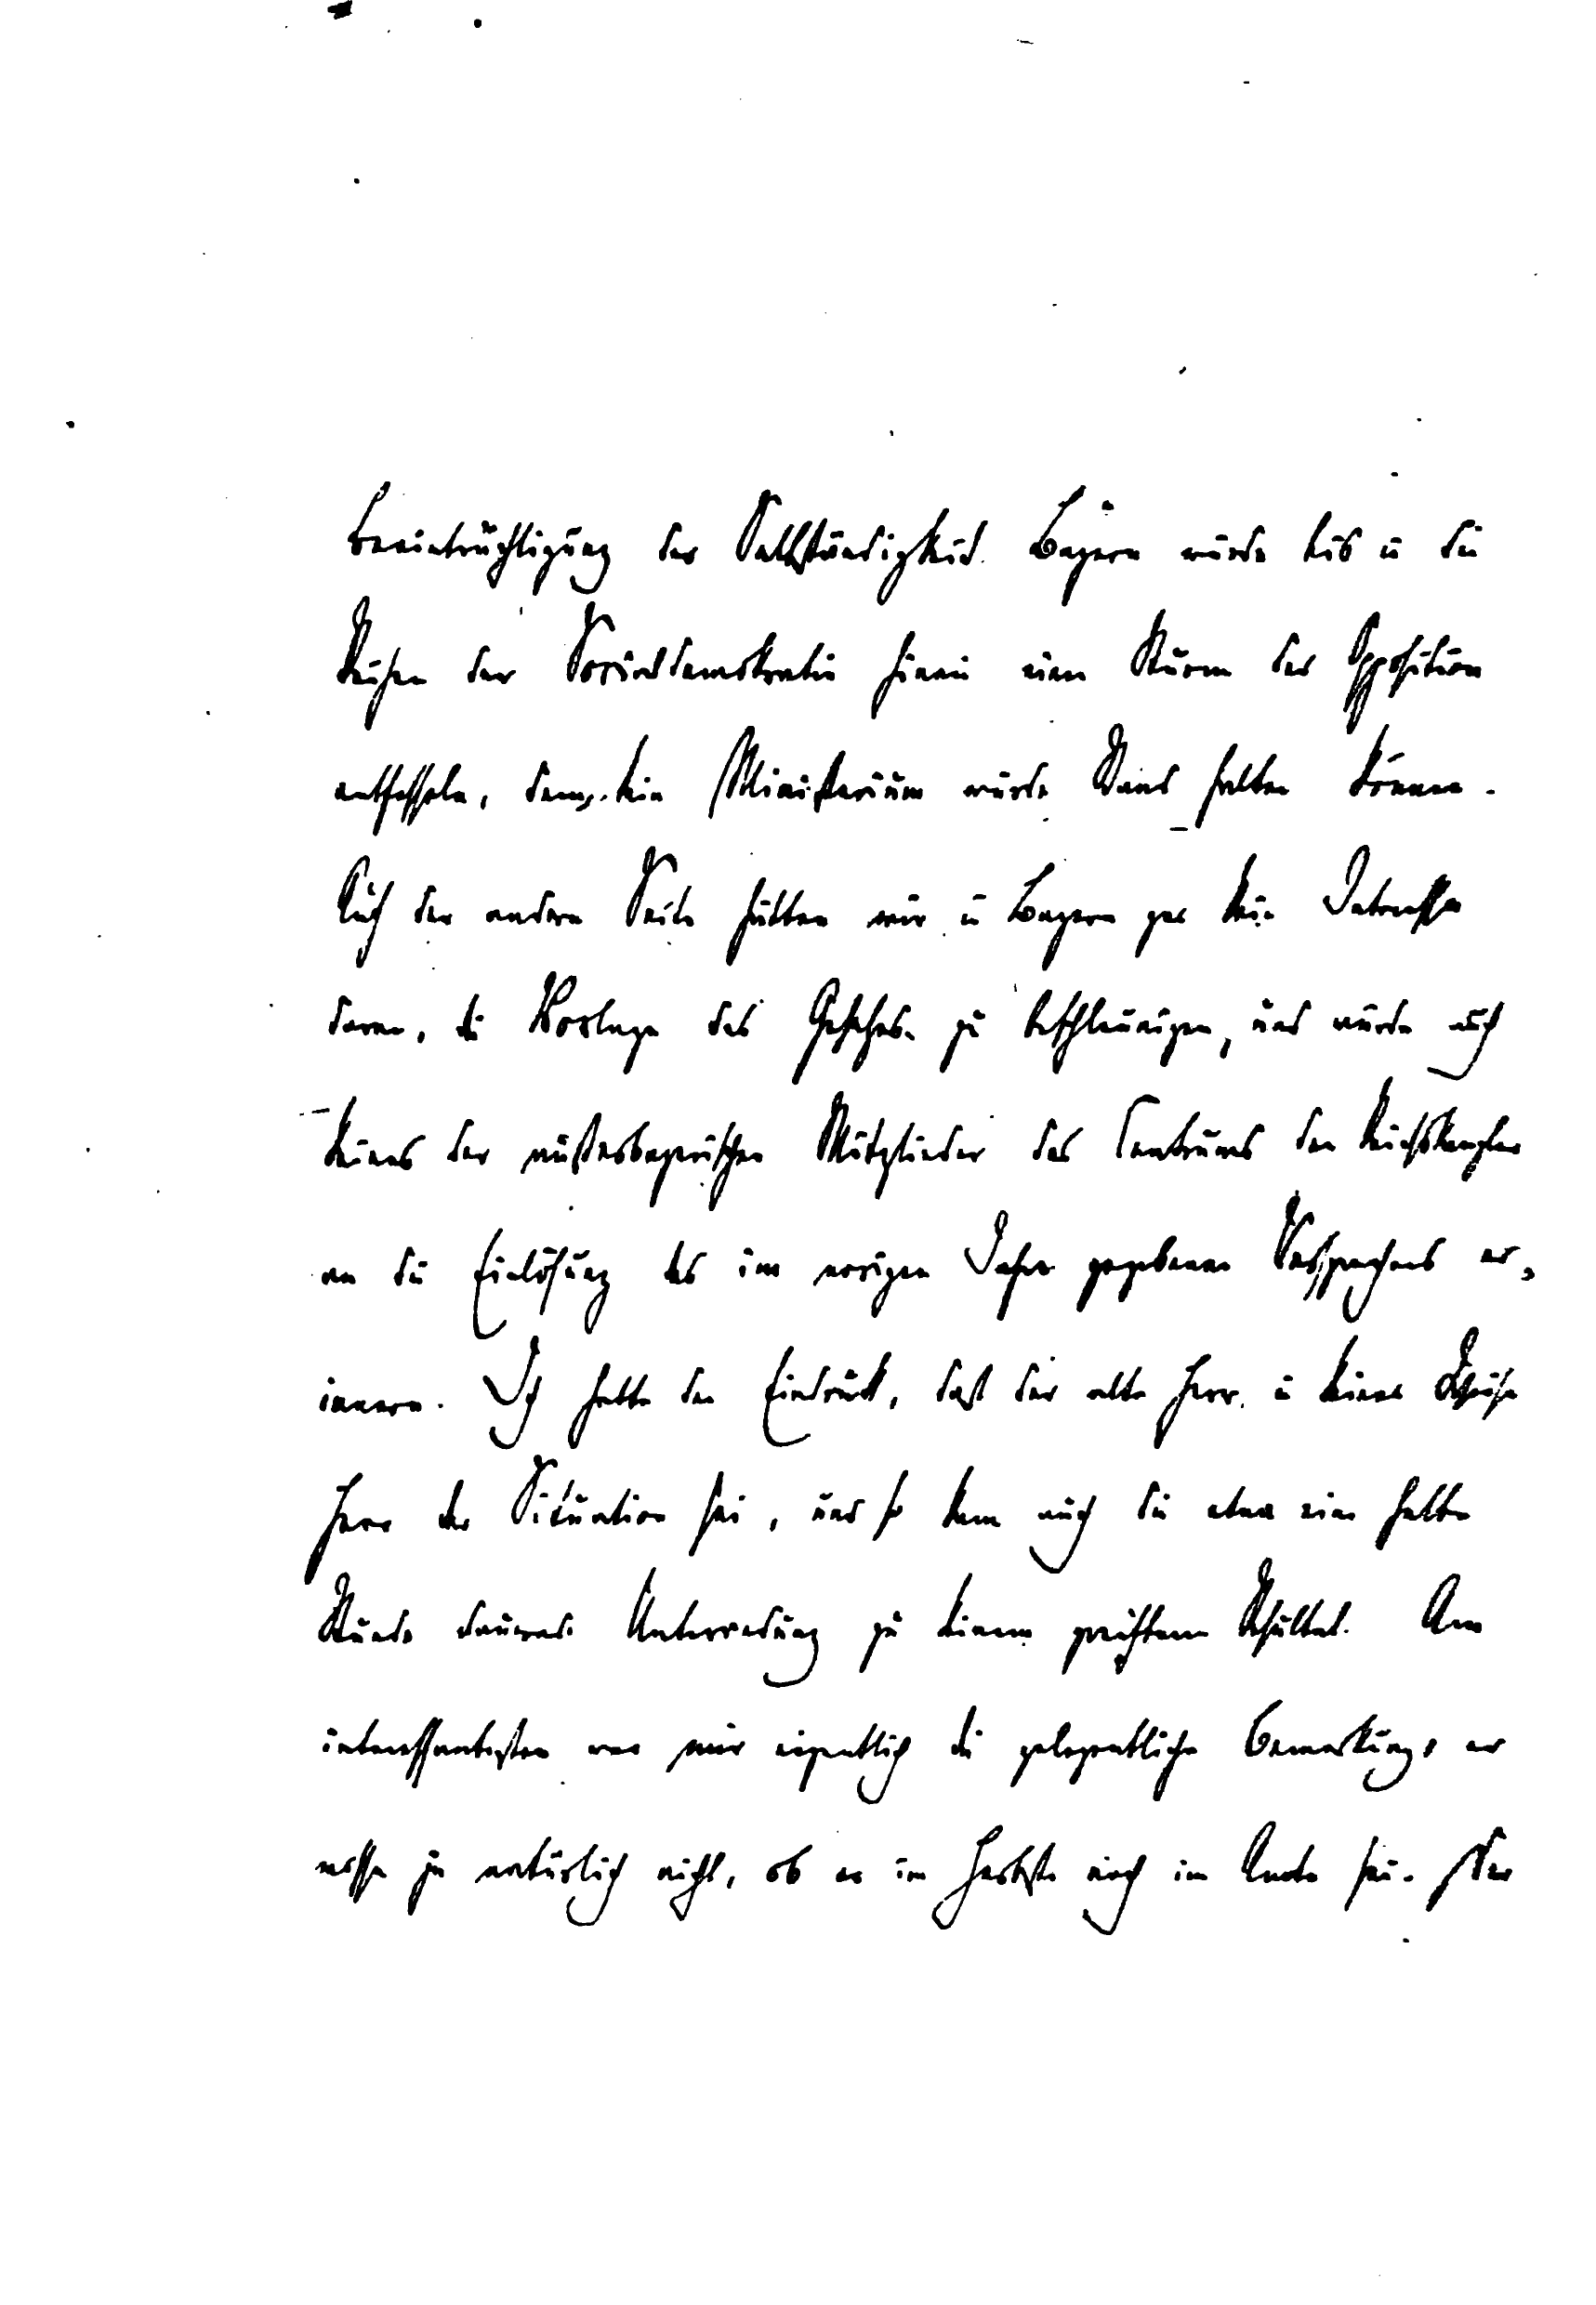 Beeinträchtigung der Selbständigkeit Bayern würde bis in die
Reihen der Socialdemokratie hinein einen Sturm der Opposition
entfesseln, dem kein Ministerium würde Stand halten können.
Auf der andern Seite hätten wir in Bayern gar kein Interesse
daran, die Vorlage des Gesetzes zu beschleunigen, und würde auch
keines der außerbayerischen Mitglieder des Centrums den Reichskanzler
an die Einlösung des im vorigen Jahre gegebenen Versprechens er-
innern. Ich hatte den Eindruck, daß der alte Herr in keiner Weise
Herr der Situation sei, und so kam auch die etwa eine halbe
Stunde dauernde Unterredung zu keinem greifbaren Resultat. Am
interessantesten war mir eigentlich die gelegentliche Bemerkung, er
wisse ja natürlich nicht, ob er im Herbste noch im Amte sei. Der